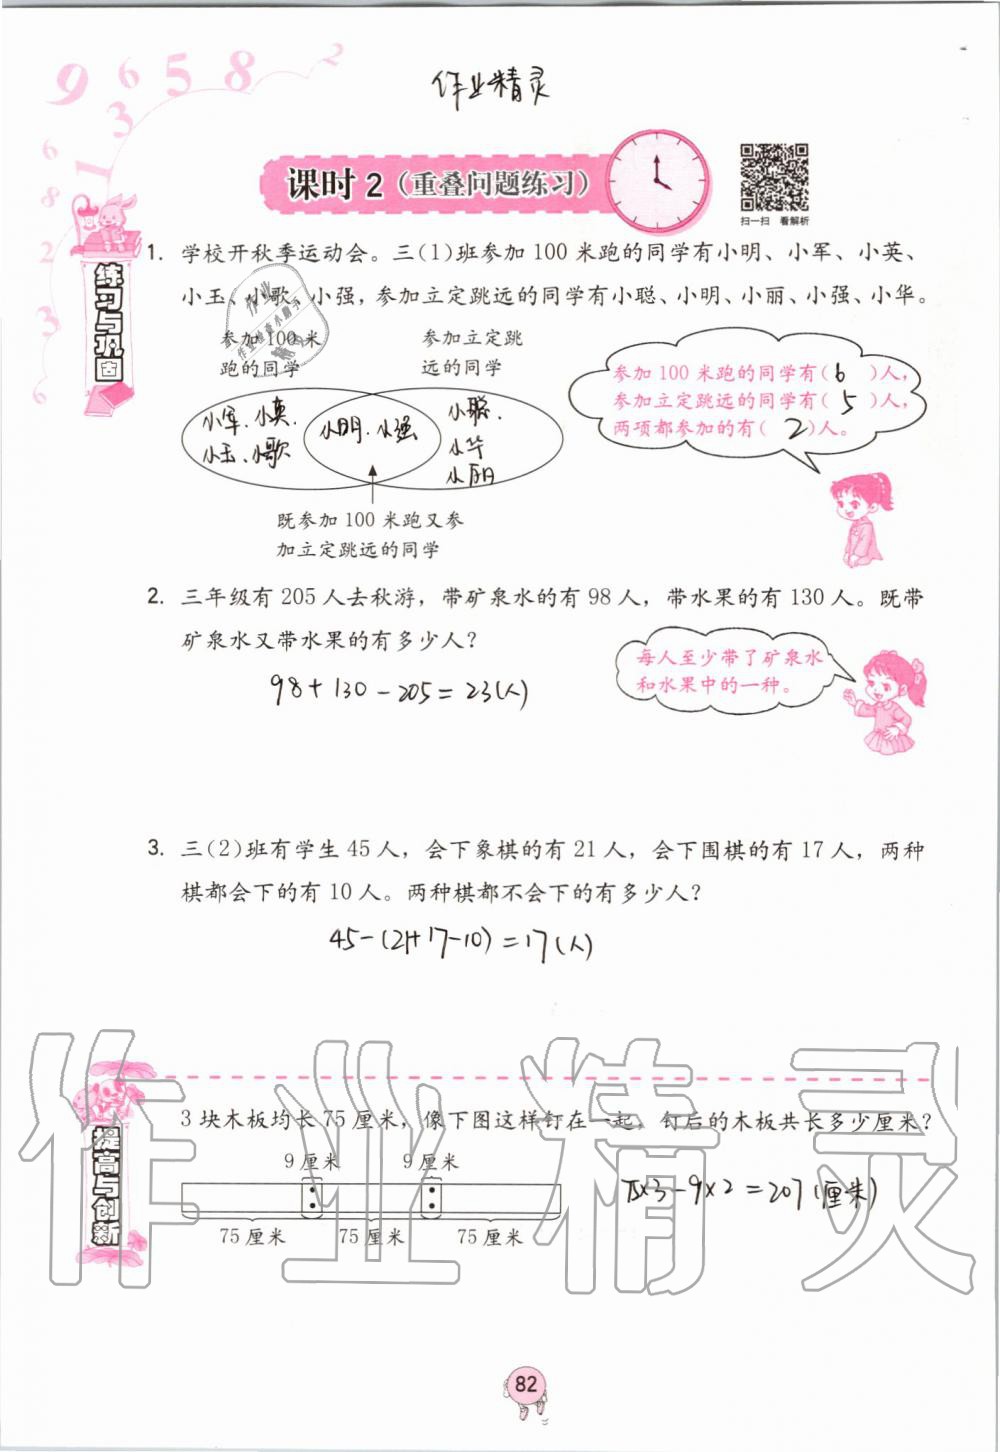 9 6 5 8 2
作业精灵
3
6
1
8
2
3
6
课时2（重叠问题练习）
扫一扫 看解析
练习与巩固
1. 学校开秋季运动会。三(1)班参加100米跑的同学有小明、小军、小英、
小玉、小歌、小强，参加立定跳远的同学有小聪、小明、小丽、小强、小华。
参加100米
跑的同学
参加立定跳
远的同学
小军、小英、
小玉、小歌
小明、小强
小聪、
小华
小丽
既参加100米跑又参
加立定跳远的同学
参加100米跑的同学有( 6 )人，
参加立定跳远的同学有( 5 )人，
两项都参加的有( 2 )人。
2. 三年级有205人去秋游，带矿泉水的有98人，带水果的有130人。既带
矿泉水又带水果的有多少人？
每人至少带了矿泉水
和水果中的一种。
98+130-205=23(人)
3. 三(2)班有学生45人，会下象棋的有21人，会下围棋的有17人，两种
棋都会下的有10人。两种棋都不会下的有多少人？
45-(21+17-10)=17(人)
作业精灵
提高与创新
3块木板均长75厘米，像下图这样钉在一起，钉后的木板共长多少厘米？
9厘米 9厘米
75厘米 75厘米 75厘米
75×3-9×2=207(厘米)
82